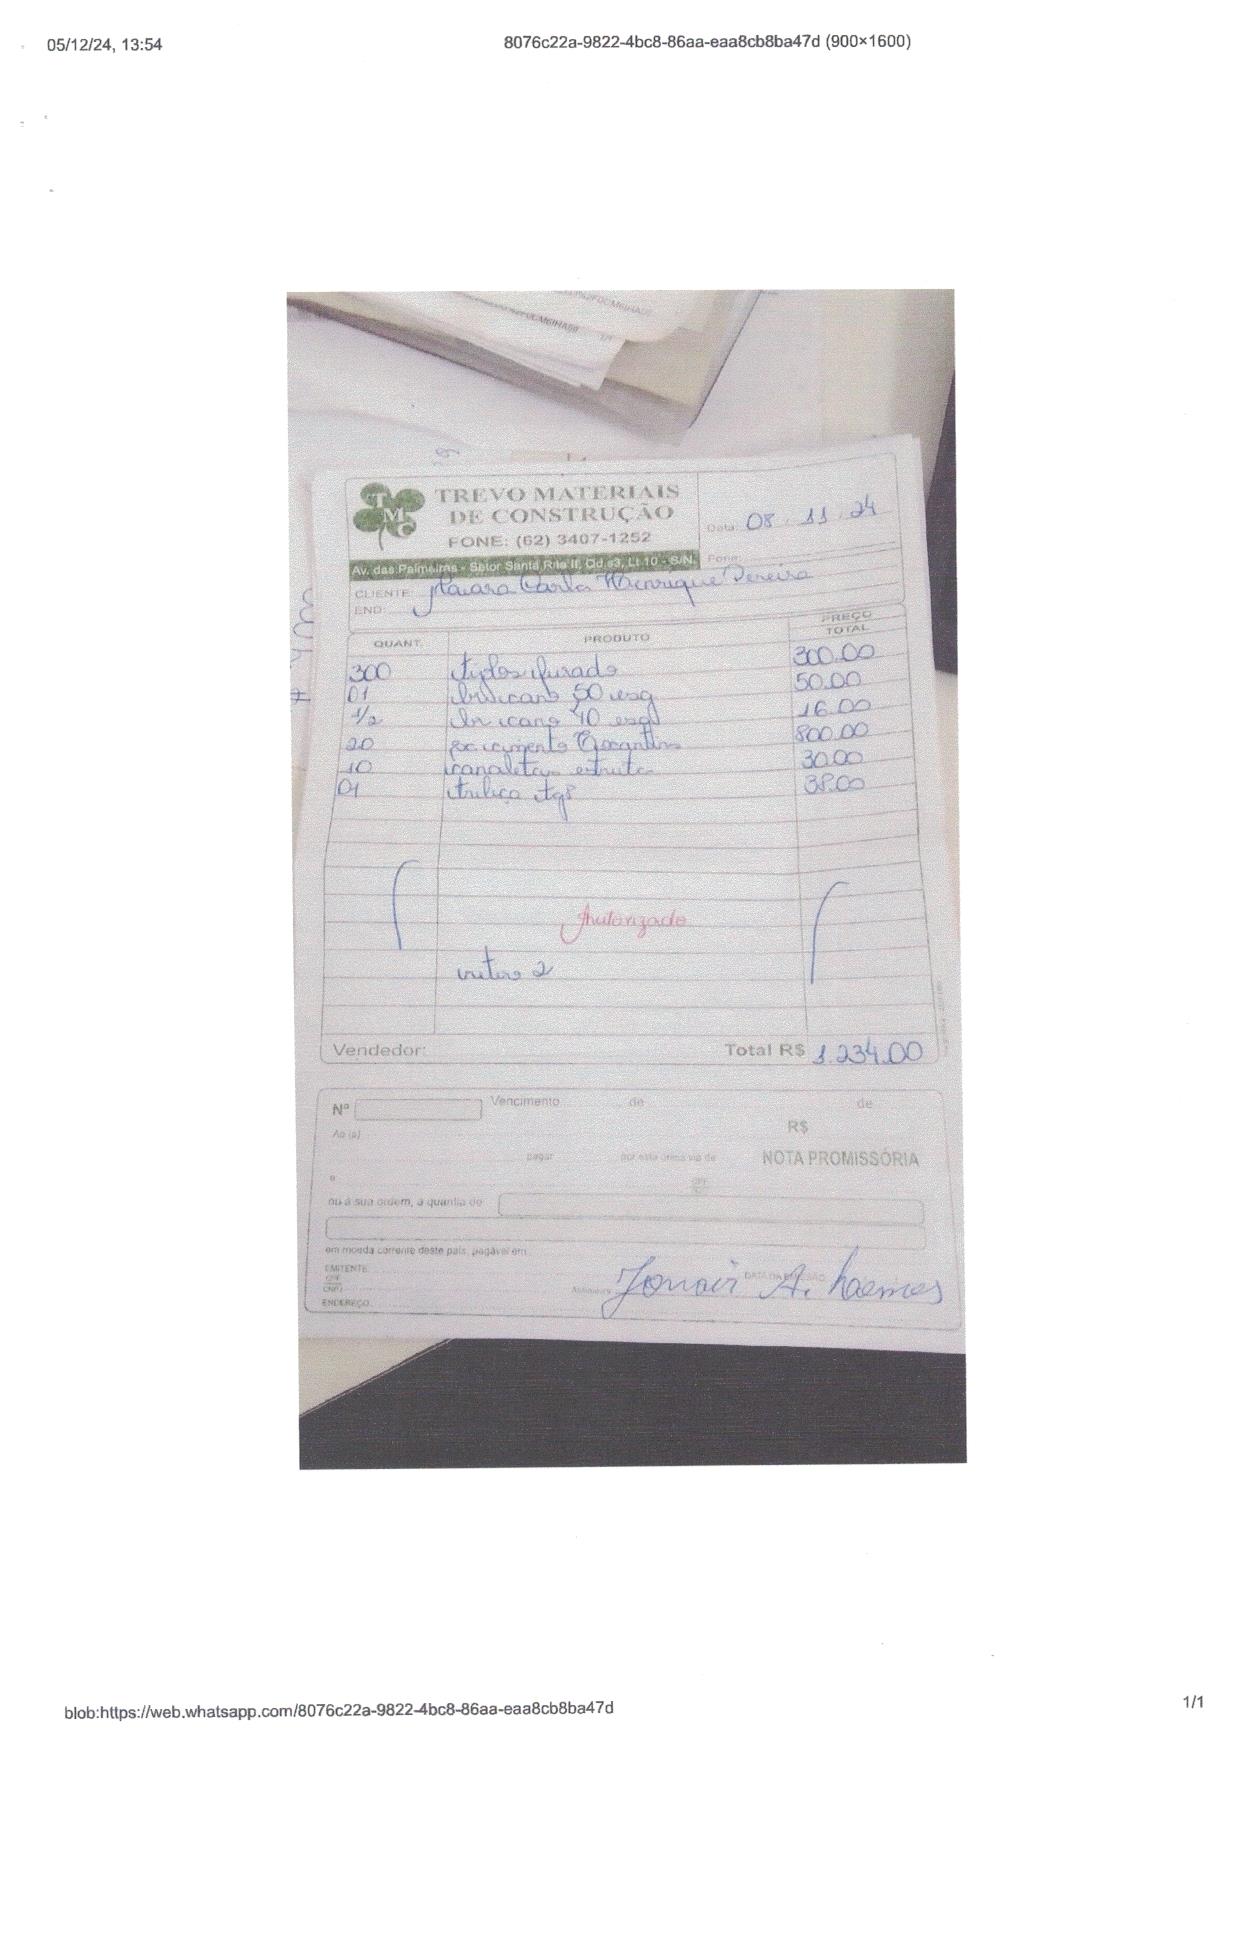 05/12/24, 13:54
8076c22a-9822-4bc8-86aa-eaa8cb8ba47d (900×1600)
TMC
TREVO MATERIAIS
DE CONSTRUÇÃO
FONE: (62) 3407-1252
Av. das Palmeiras - Setor Santa Rita II, Qd 03, Lt.10 - S/N.
Data: 08.11.24
Fone:
CLIENTE: Carla Henrique Pereira
END:
QUANT. PRODUTO PREÇO TOTAL
300 furado 300.00
01 50 esq 50.00
1/2 40 esq 16.00
20 cimento Tocantins 800.00
10 canaletas 30.00
01 treliça tg8 38.00
Autorizado
2
Vendedor: Total R$ 1.234.00
Nº Vencimento de de
R$
Ao(s)
pagar por esta única via de NOTA PROMISSÓRIA
ou à sua ordem, a quantia de
em moeda corrente deste país, pagável em
EMITENTE
CPF
CNPJ
ENDEREÇO
DATA DA EMISSÃO
A.
blob:https://web.whatsapp.com/8076c22a-9822-4bc8-86aa-eaa8cb8ba47d
1/1